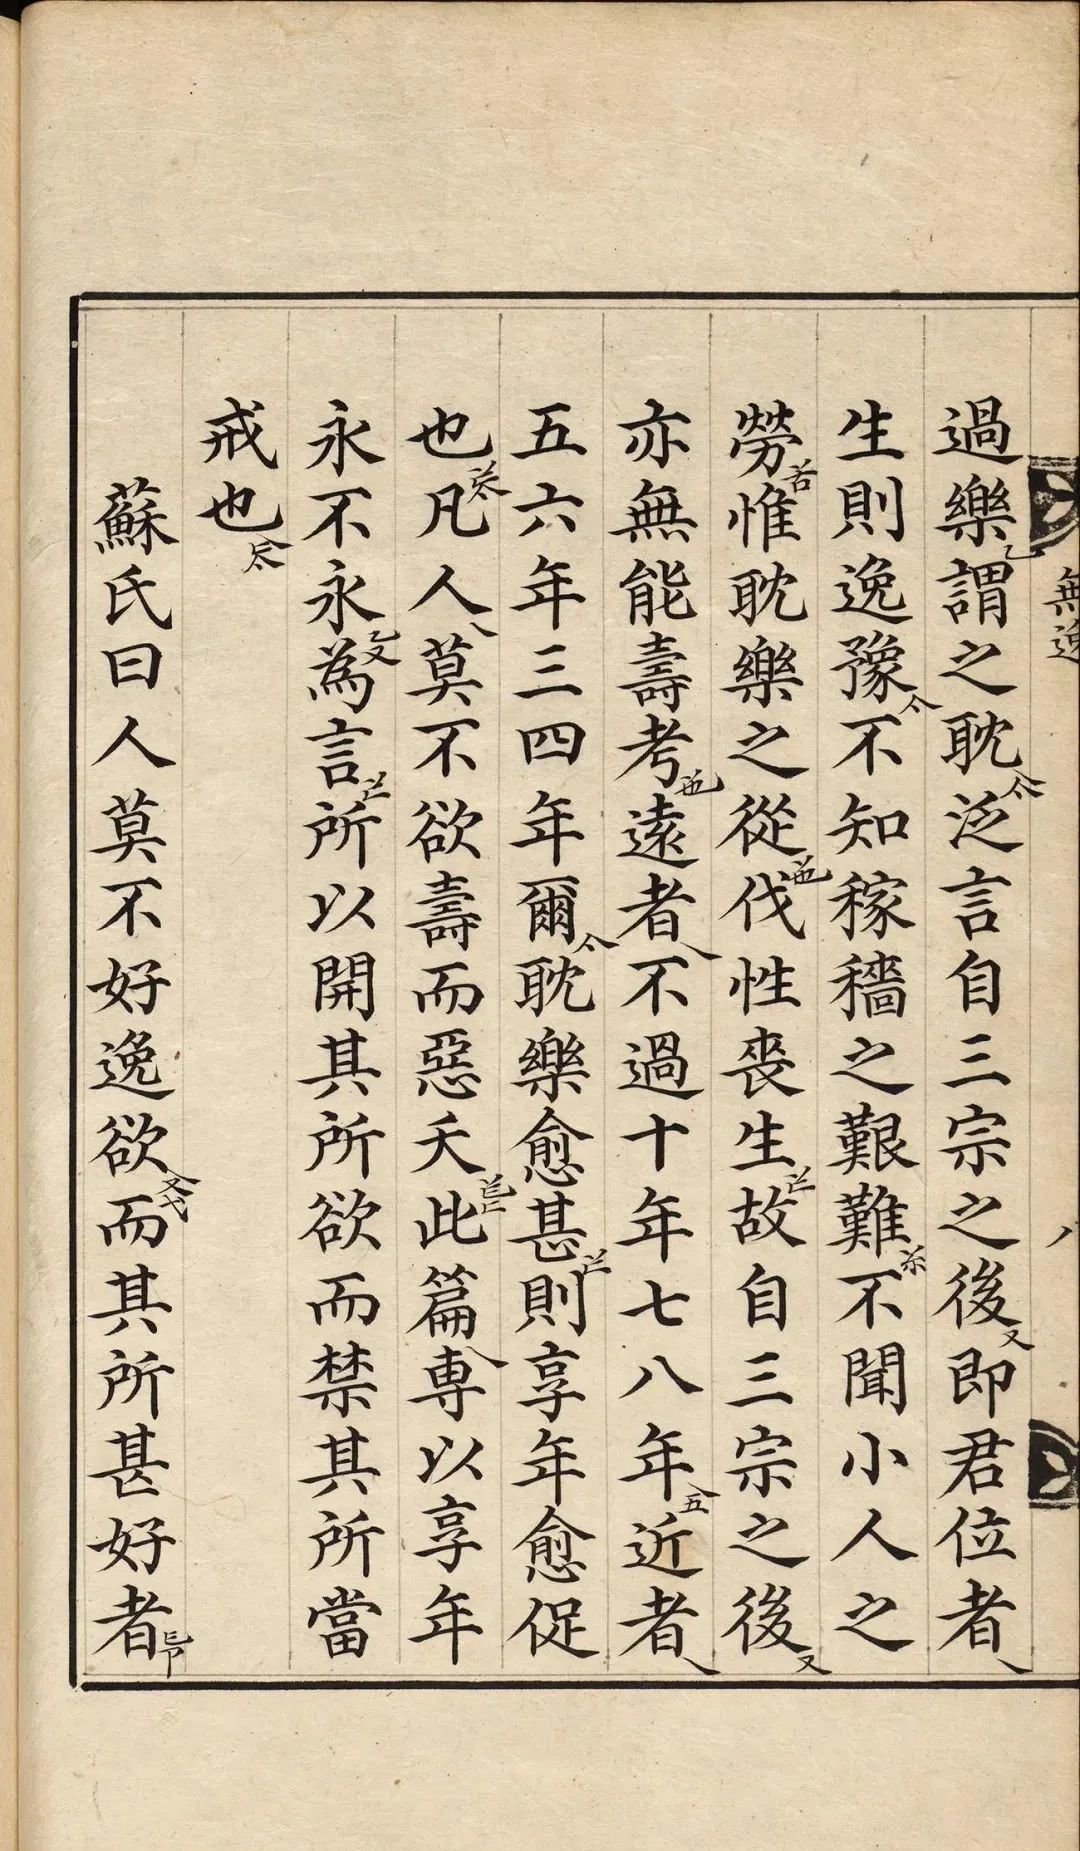 無逸
過樂謂之耽泛言自三宗之後即君位者
生則逸豫不知稼穡之艱難不聞小人之
勞惟耽樂之從伐性喪生故自三宗之後
亦無能壽考遠者不過十年七八年近者
五六年三四年爾耽樂愈甚則享年愈促
也凡人莫不欲壽而惡夭此篇專以享年
永不永為言所以開其所欲而禁其所當
戒也
蘇氏曰人莫不好逸欲而其所甚好者